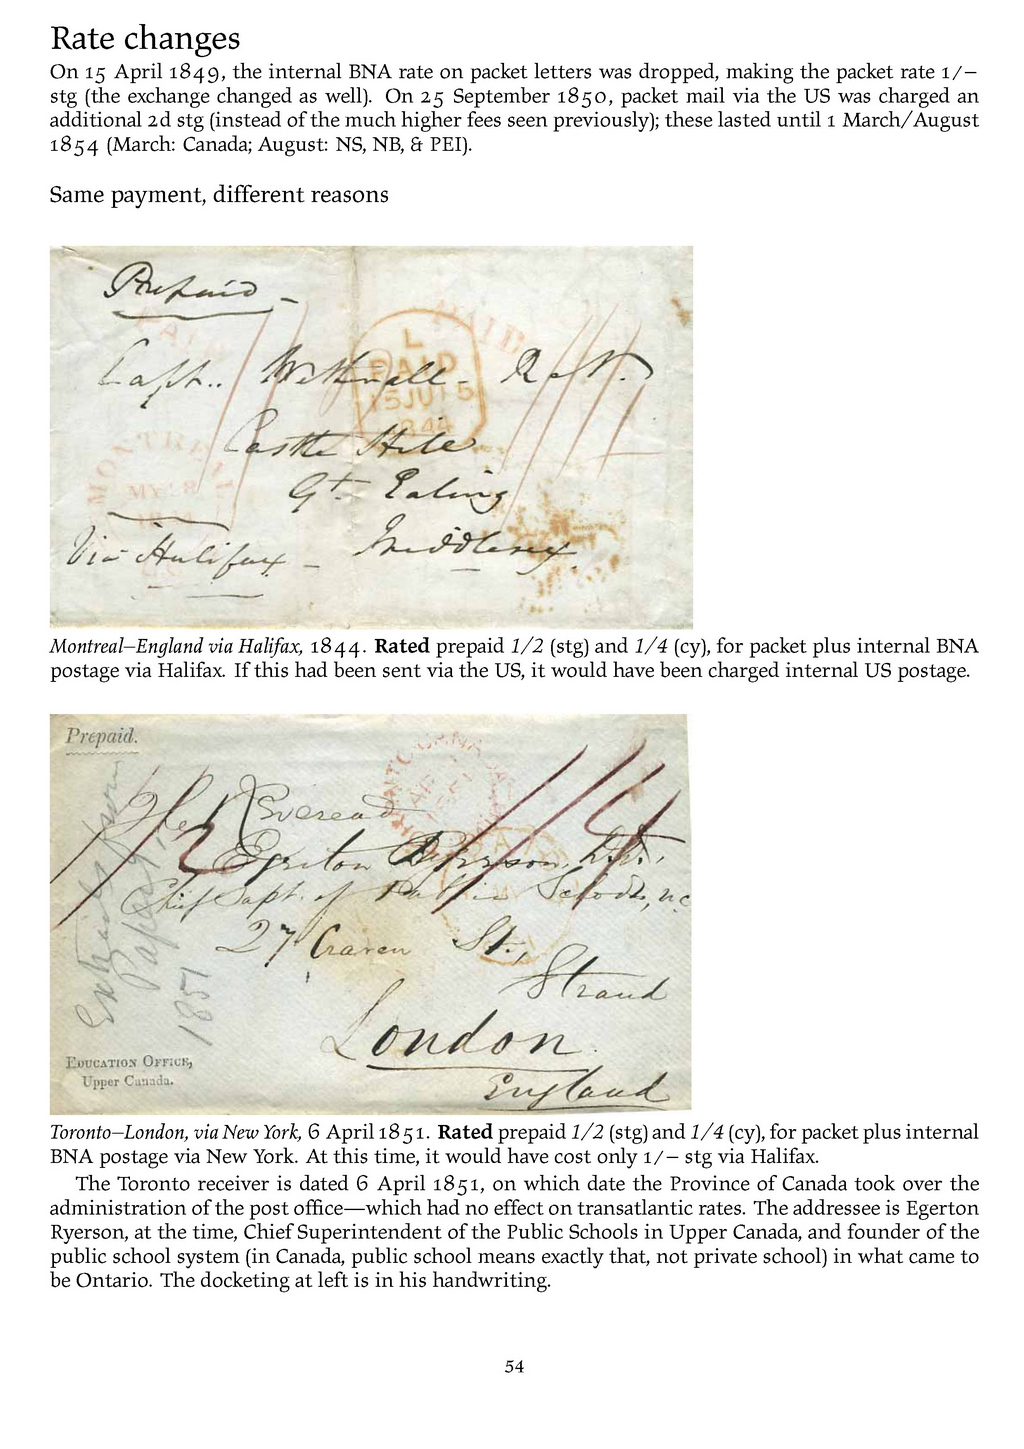 Rate changes
On 15 April 1849, the internal BNA rate on packet letters was dropped, making the packet rate 1/–
stg (the exchange changed as well). On 25 September 1850, packet mail via the US was charged an
additional 2d stg (instead of the much higher fees seen previously); these lasted until 1 March/August
1854 (March: Canada; August: NS, NB, & PEI).
Same payment, different reasons
Prepaid –
PAID
L
PAID
15JU15
1844
Capt.. Wethnall – R.N.
Castle Hill
MONTREAL
MY
Gt Ealing
Via Halifax –
Middlesex
Montreal–England via Halifax, 1844. Rated prepaid 1/2 (stg) and 1/4 (cy), for packet plus internal BNA
postage via Halifax. If this had been sent via the US, it would have been charged internal US postage.
Prepaid.
The Reverend
1/2
1/4
Egerton Ryerson, D.D.,
Chief Supt. of Public Schools, U.C.
27 Craven St.,
Strand
London
England
1851
EDUCATION OFFICE,
Upper Canada.
Toronto–London, via New York, 6 April 1851. Rated prepaid 1/2 (stg) and 1/4 (cy), for packet plus internal
BNA postage via New York. At this time, it would have cost only 1/– stg via Halifax.
The Toronto receiver is dated 6 April 1851, on which date the Province of Canada took over the
administration of the post office—which had no effect on transatlantic rates. The addressee is Egerton
Ryerson, at the time, Chief Superintendent of the Public Schools in Upper Canada, and founder of the
public school system (in Canada, public school means exactly that, not private school) in what came to
be Ontario. The docketing at left is in his handwriting.
54